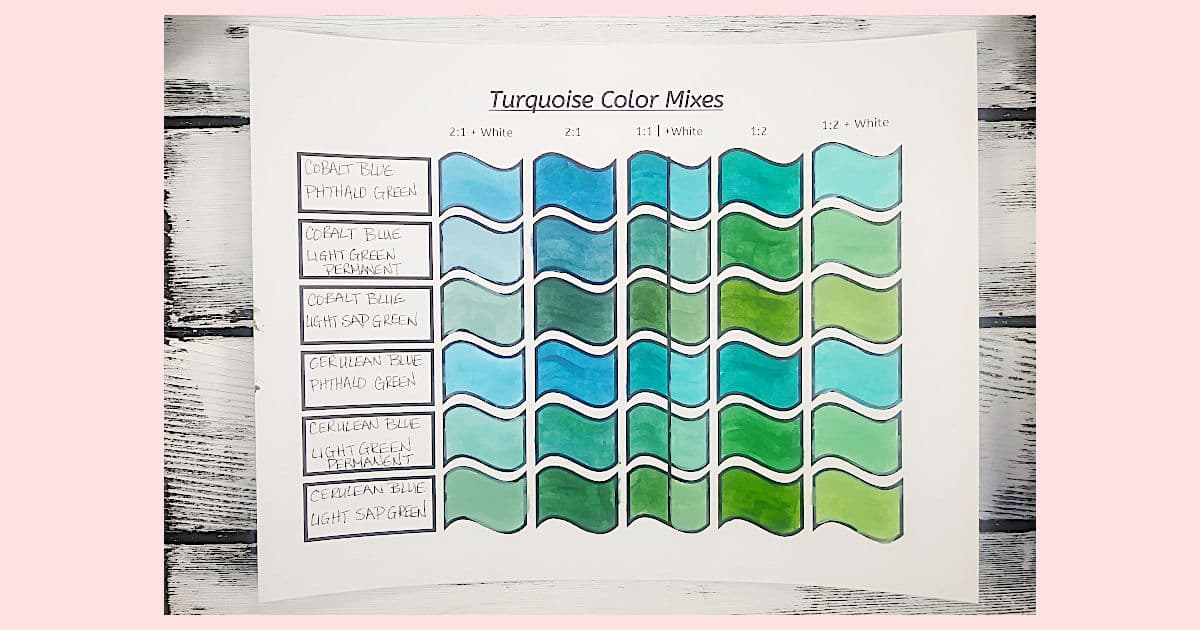 Turquoise Color Mixes
2:1 + White 2:1 1:1 | +White 1:2 1:2 + White
COBALT BLUE
PHTHALO GREEN
COBALT BLUE
LIGHT GREEN
PERMANENT
COBALT BLUE
LIGHT SAP GREEN
CERULEAN BLUE
PHTHALO GREEN
CERULEAN BLUE
LIGHT GREEN
PERMANENT
CERULEAN BLUE
LIGHT SAP GREEN